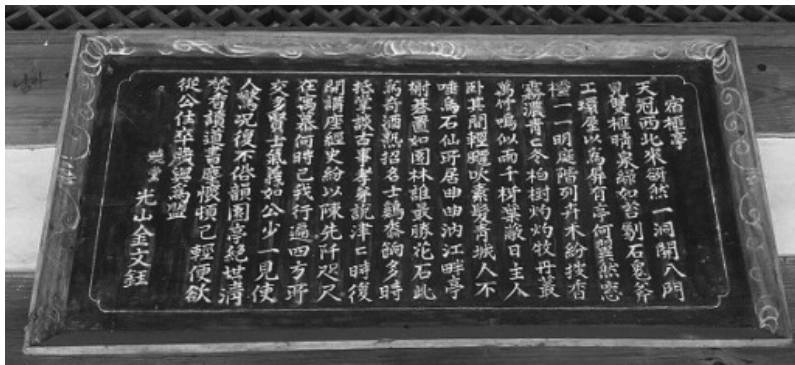 宿榧亭
天冠西北來研然一洞開八門
見雙榧晴泉綠如苔劚石鬼斧
工環壁以爲屏有亭何翼然窓
櫺一一明庭階列卉木紛披杏
露濃靑〻冬柏樹灼灼牧丹叢
萬竹鳴似雨千枒葉蔽日主人
臥其間輕颸吹素髮靑城人不
唾烏石仙所居曲曲汭江畔亭
榭碁置如園林誰最勝花石此
爲奇酒熟招名士鷄黍餉多時
抵掌談古事說津〻時復
開講座經史紛以陳先阡咫尺
在寓慕何時已我行遍四方所
交多賢士氣義如公少一見使
人驚況復不俗韻園亭絕世淸
焚香讀道書塵悵頓已輕便欲
從公住卒歲與爲盟
光山金文鈺